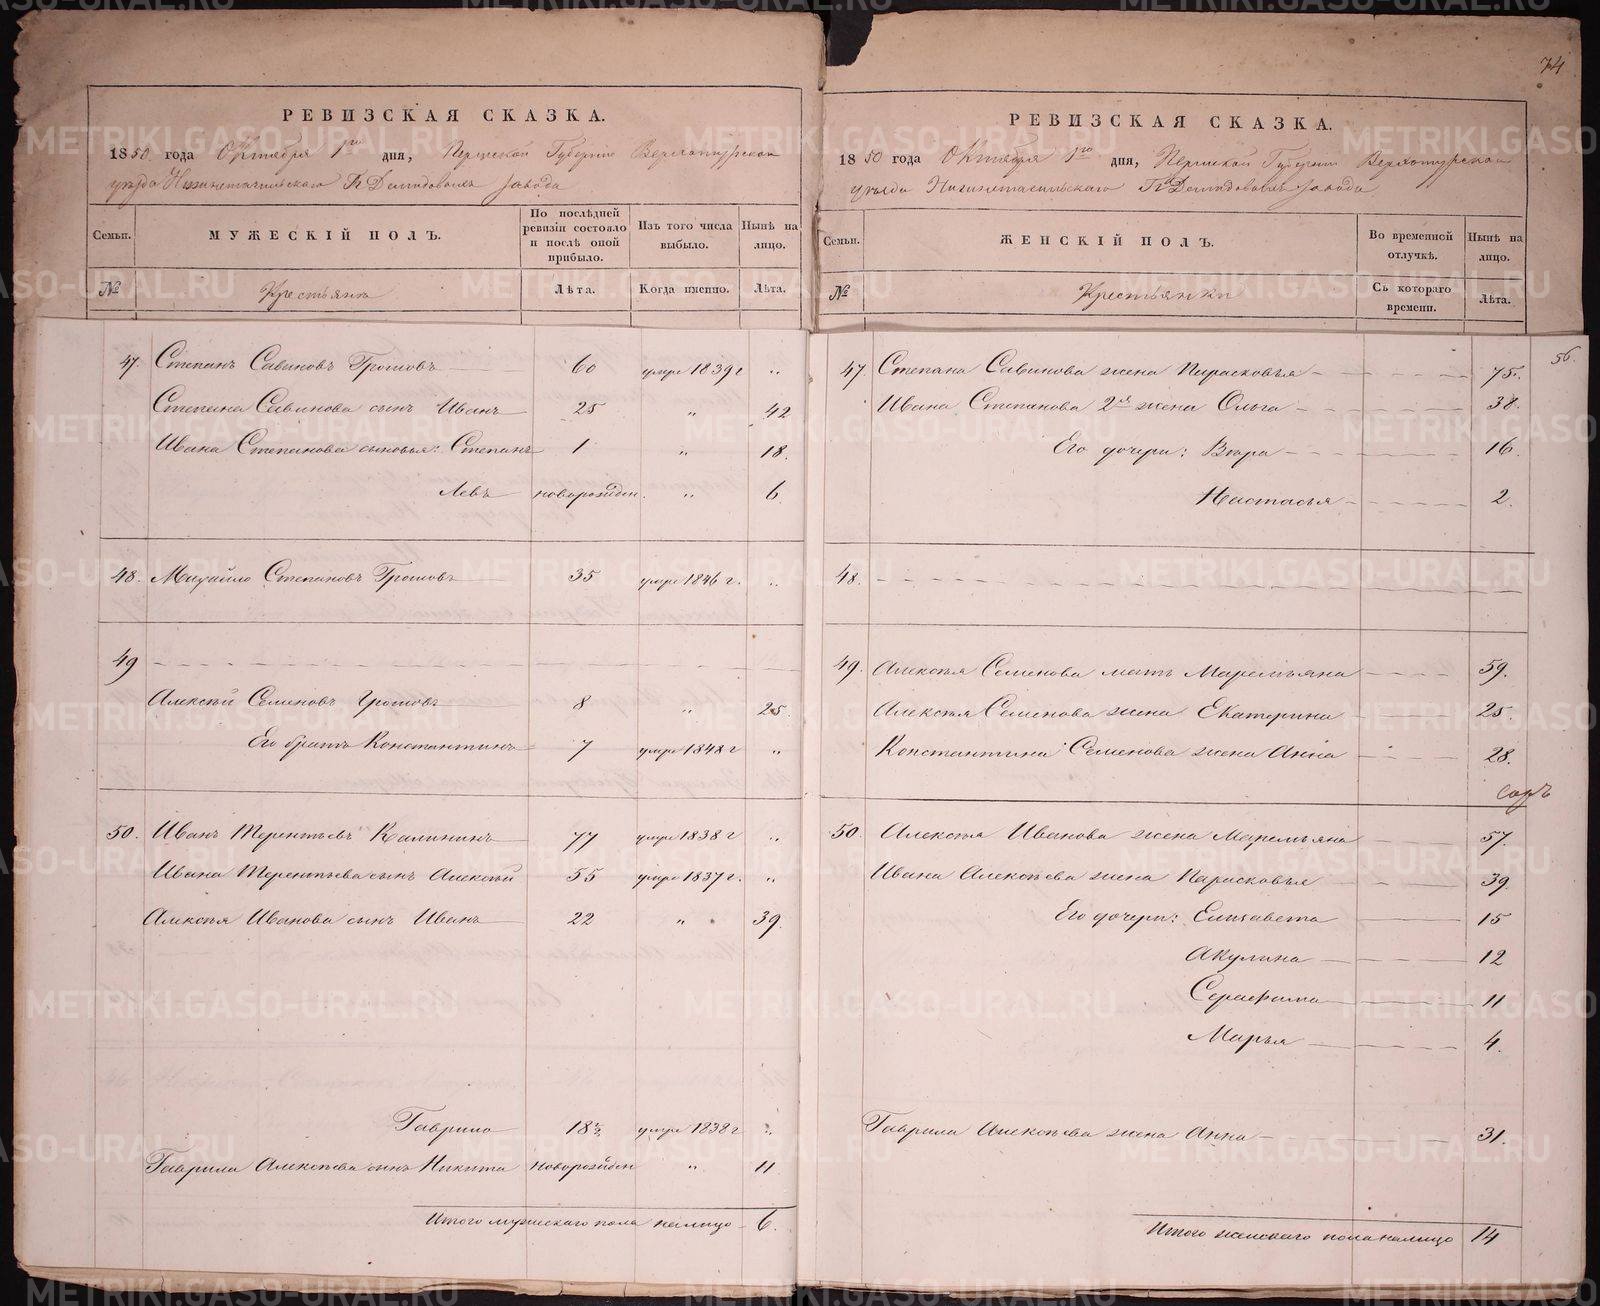 74
РЕВИЗСКАЯ СКАЗКА.
1850 года Октября 1го дня, Пермской Губернiи Верхотурскаго
уѣзда Нижнетагильскаго Гд Демидовыхъ завода
Семьи. МУЖЕСКIЙ ПОЛЪ. По послѣдней ревизiи состояло и послѣ оной прибыло. Изъ того числа выбыло. Нынѣ на лицо.
№ Крестьяне Лѣта. Когда именно. Лѣта.
47. Степанъ Савиновъ Громовъ 60 умре 1839 г „
Степана Савинова сынъ Иванъ 25 „ 42
Ивана Степанова сыновья: Степанъ 1 „ 18.
Левъ новорожден. „ 6.
48. Михайло Степановъ Громовъ 35 умре 1846 г. „
49
Алексѣй Семеновъ Громовъ 8 „ 25.
Его братъ Константинъ 7 умре 1848 г „
50. Иванъ Терентьевъ Калининъ 77 умре 1838 г „
Ивана Терентьева сынъ Алексѣй 55 умре 1837 г. „
Алексѣя Иванова сынъ Иванъ 22 „ 39.
Гаврило 18½ умре 1838 г „
Гаврила Алексѣева сынъ Никита новорожден „ 11
Итого мужескаго пола налицо 6.
РЕВИЗСКАЯ СКАЗКА.
1850 года Октября 1го дня, Пермской Губернiи Верхотурскаго
уѣзда Нижнетагильскаго Гд Демидовыхъ завода
Семьи. ЖЕНСКIЙ ПОЛЪ. Во временной отлучкѣ. Нынѣ на лицо.
№ Крестьянки Съ котораго времени. Лѣта.
56.
47. Степана Савинова жена Парасковья 75.
Ивана Степанова 2я жена Ольга 38.
Его дочери: Вѣра 16.
Настасья 2.
48.
49. Алексѣя Семенова мать Маремьяна 59.
Алексѣя Семенова жена Екатерина 25.
Константина Семенова жена Анна 28.
50. Алексѣя Иванова жена Маремьяна 57.
Ивана Алексѣева жена Парасковья 39.
Его дочери: Елизавета 15
Акулина 12
Серафима 11
Марья 4.
Гаврила Алексѣева жена Анна 31.
Итого женскаго пола налицо 14
METRIKI.GASO-URAL.RU